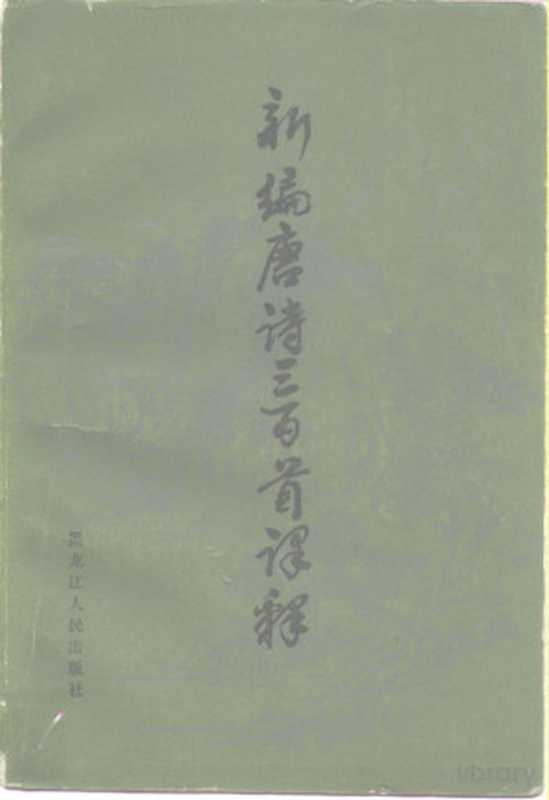 新编唐诗三百首译释
黑龙江人民出版社
library